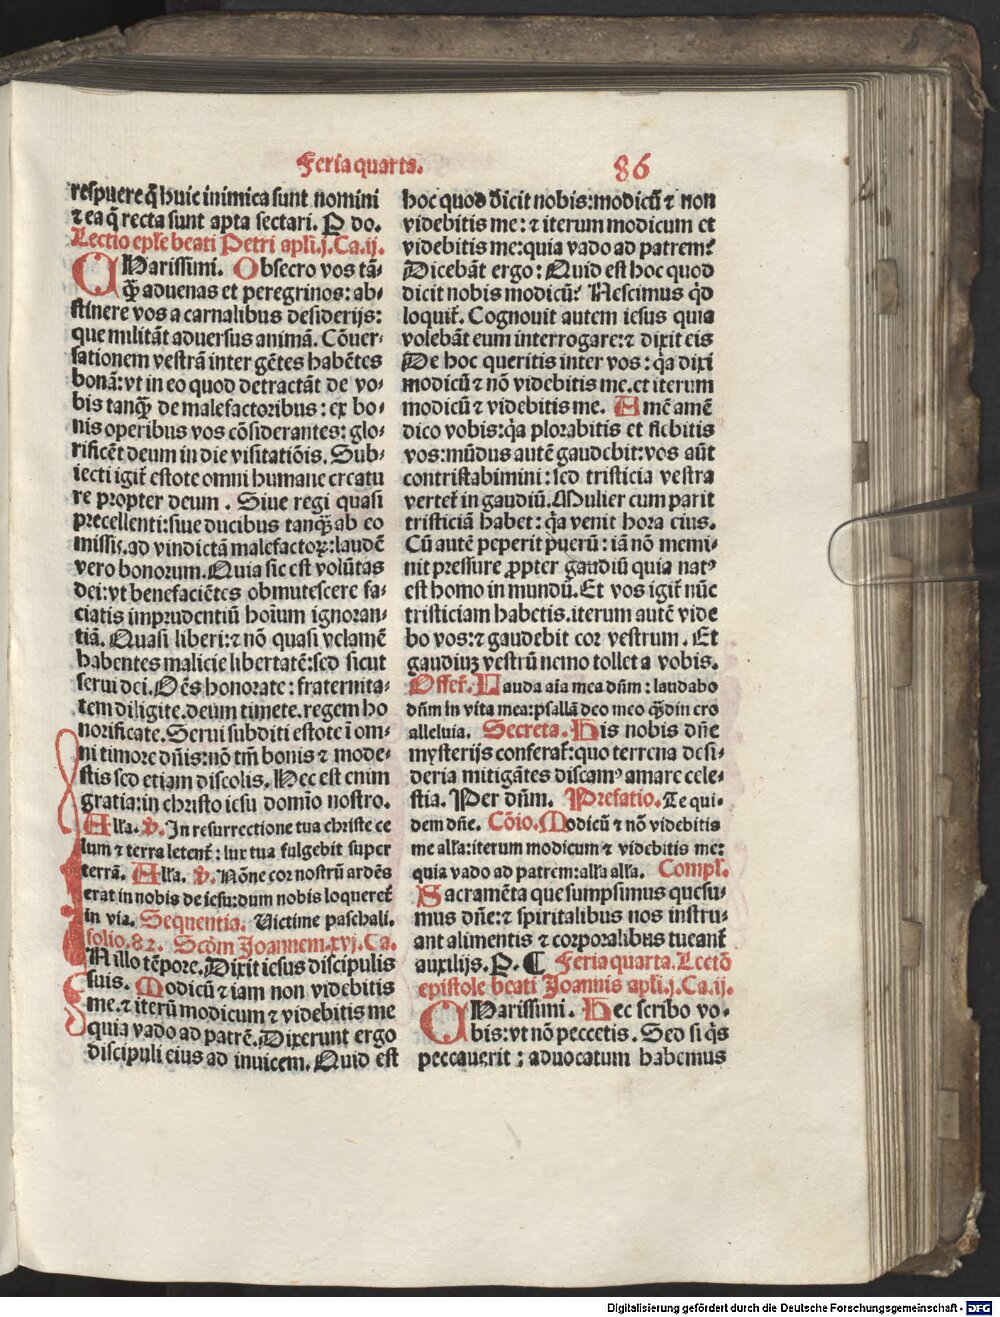 Feria quarta. 86
respuere q̄ huic inimica sunt nomini
⁊ ea q̄ recta sunt apta sectari. P do.
Lectio epl̄e beati Petri apl̄i.j.Ca.ij.
CHarissimi. Obsecro vos tā⸗
q̄ȝ aduenas et peregrinos: ab⸗
stinere vos a carnalibus desiderijs:
que militāt aduersus animā. Cōuer⸗
sationem vestrā inter gētes habētes
bonā: vt in eo quod detractāt de vo⸗
bis tanq̄ȝ de malefactoribus: ex bo⸗
nis operibus vos cōsiderantes: glo⸗
rificēt deum in die visitatiōis. Sub⸗
iecti igit̄ estote omni humane creatu
re propter deum. Siue regi quasi
precellenti: siue ducibus tanq̄ȝ ab eo
missis. ad vindictā malefactoꝝ: laudē
vero bonorum. Quia sic est volūtas
dei: vt benefaciētes obmutescere fa⸗
ciatis imprudentiū hoīum ignoran⸗
tiā. Quasi liberi: ⁊ nō quasi velamē
habentes malicie libertatē: sed sicut
serui dei. Oēs honorate: fraternita⸗
tem diligite. deum timete. regem ho
norificate. Serui subditi estote ī om⸗
ni timore dn̄is: nō tm̄ bonis ⁊ mode⸗
stis sed etiam discolis. Hec est enim
gratia: in christo iesu domīo nostro.
All'a. ℣. In resurrectione tua christe ce
lum ⁊ terra letent̄: lux tua fulgebit super
terrā. All'a. ℣. Nōne cor nostrū ardēs
erat in nobis de iesu: dum nobis loqueret̄
in via. Sequentia. Victime paschali.
folio.82. Scd̄m Joannem.xvj.Ca.
IN illo tēpore. Dixit iesus discipulis
suis. Modicū ⁊ iam non videbitis
me. ⁊ iterū modicum ⁊ videbitis me
quia vado ad patrē. Dixerunt ergo
discipuli eius ad inuicem. Quid est
hoc quod dicit nobis: modicū ⁊ non
videbitis me: ⁊ iterum modicum et
videbitis me: quia vado ad patrem?
Dicebāt ergo: Quid est hoc quod
dicit nobis modicū? Nescimus qd̄
loquit̄. Cognouit autem iesus quia
volebāt eum interrogare: ⁊ dixit eis
De hoc queritis inter vos: q̄a dixi
modicū ⁊ nō videbitis me. et iterum
modicū ⁊ videbitis me. Amē amē
dico vobis: q̄a plorabitis et flebitis
vos: mūdus autē gaudebit: vos aūt
contristabimini: sed tristicia vestra
vertet̄ in gaudiū. Mulier cum parit
tristiciā habet: q̄a venit hora eius.
Cū autē peperit puerū: iā nō memi⸗
nit pressure ꝓpter gaudiū quia natꝰ
est homo in mundū. Et vos igit̄ nūc
tristiciam habetis. iterum autē vide
bo vos: ⁊ gaudebit cor vestrum. Et
gaudiuȝ vestrū nemo tollet a vobis.
Offer̄. Lauda aīa mea dn̄m: laudabo
dn̄m in vita mea: psallā deo meo q̄ȝdiu ero
alleluia. Secreta. His nobis dn̄e
mysterijs conferat̄: quo terrena desi⸗
deria mitigātes discamꝰ amare cele⸗
stia. Per dn̄m. Prefatio. Te qui⸗
dem dn̄e. Cōio. Modicū ⁊ nō videbitis
me all'a: iterum modicum ⁊ videbitis me:
quia vado ad patrem: all'a all'a. Compl̄.
Sacramēta que sumpsimus quesu⸗
mus dn̄e: ⁊ spiritalibus nos instru⸗
ant alimentis ⁊ corporalibus tueant̄
auxilijs. P. ¶ Feria quarta. Lectō
epistole beati Joannis apl̄i.j.Ca.ij.
CHarissimi. Hec scribo vo⸗
bis: vt nō peccetis. Sed si q̄s
peccauerit: aduocatum habemus
Digitalisierung gefördert durch die Deutsche Forschungsgemeinschaft - DFG